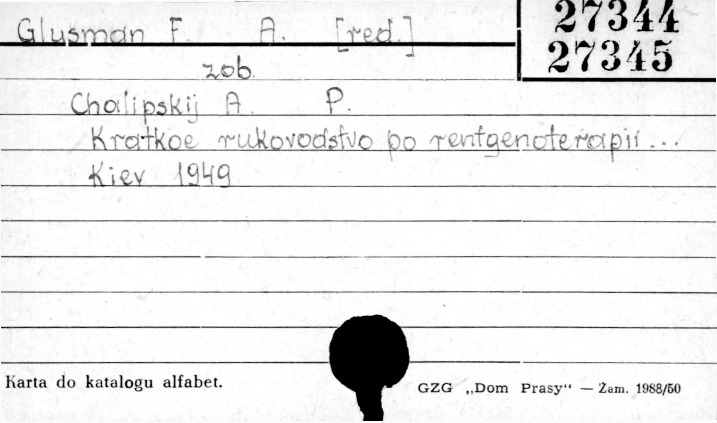 Glusman F. A. [red.]
27344
27345
zob.
Chalipskij A. P.
Kratkoe rukovodstvo po rentgenoterapii...
Kiev 1949
Karta do katalogu alfabet.
GZG „Dom Prasy“ — Zam. 1988/50